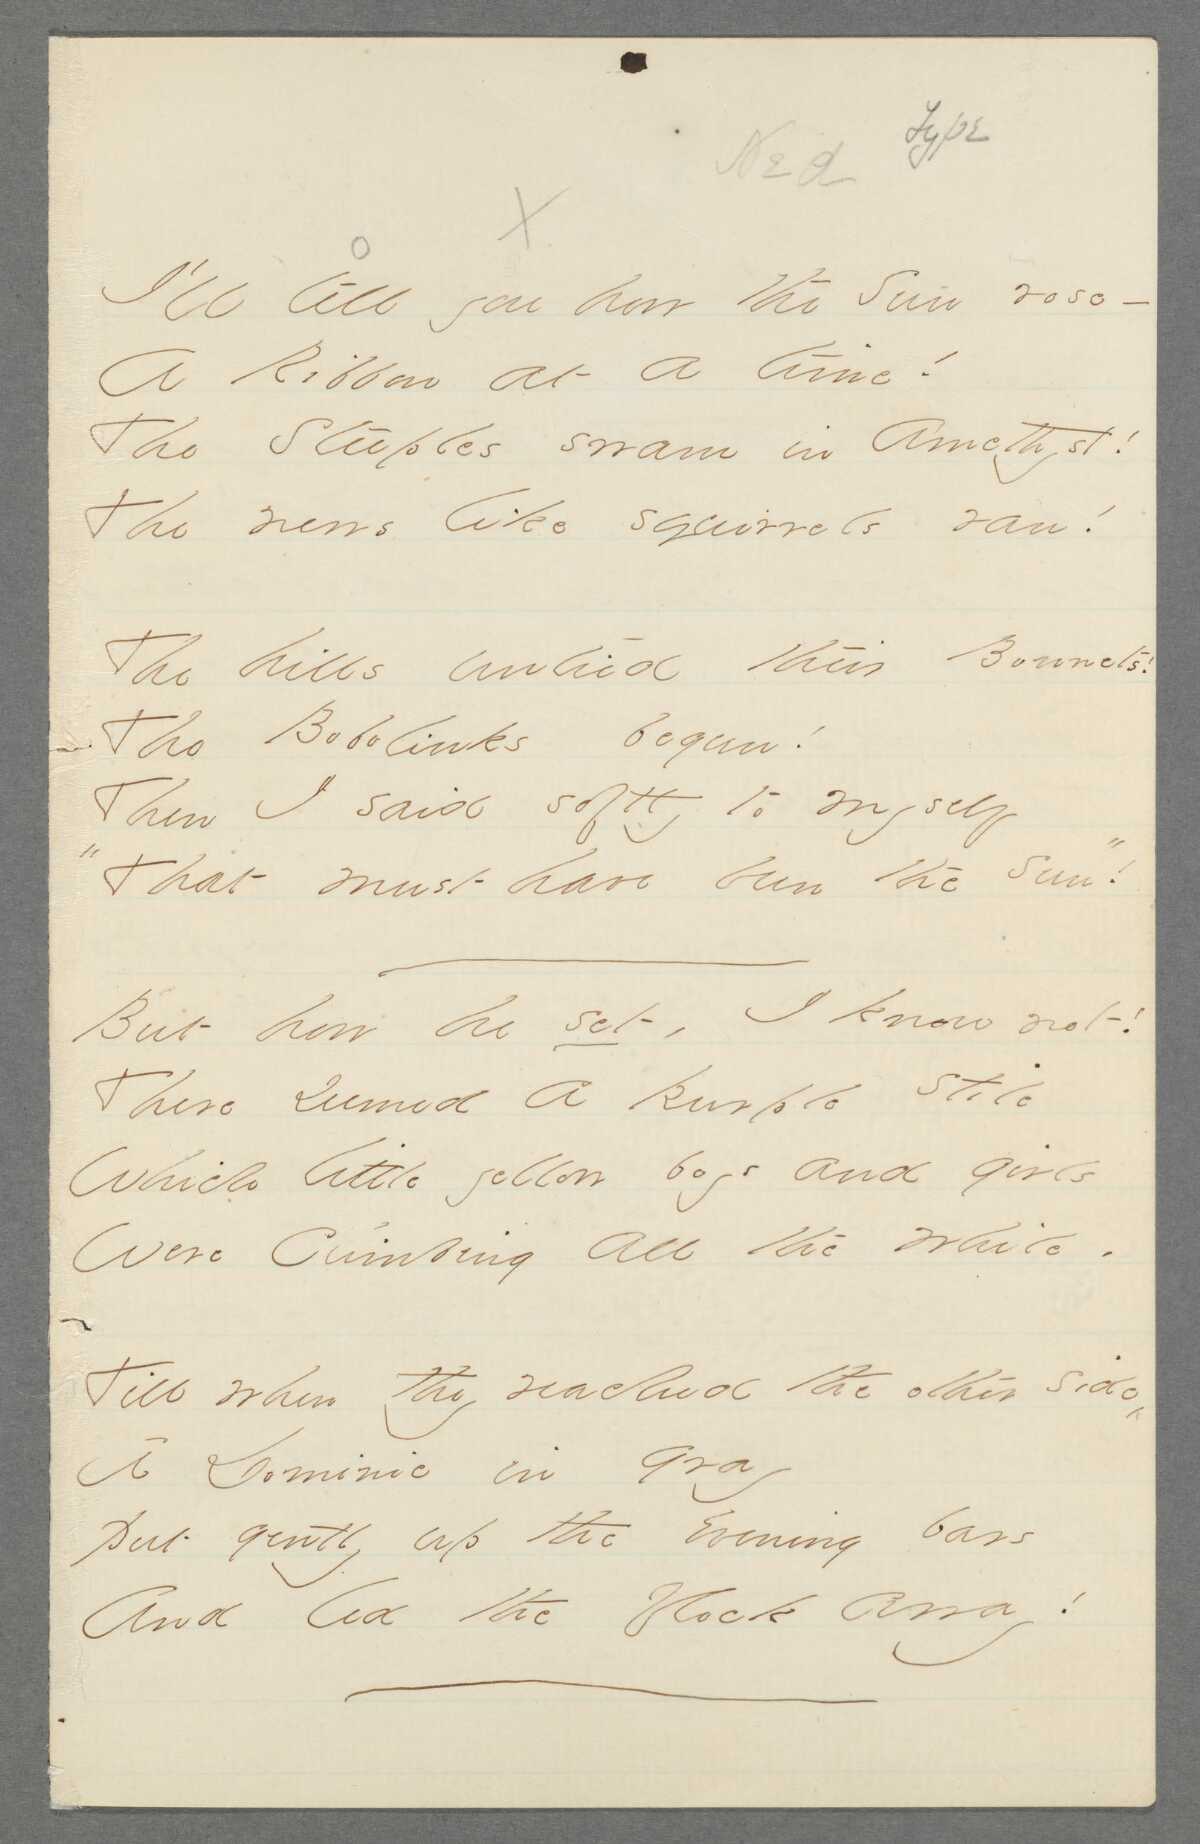 Type
Ned
X
o
I'll tell you how the Sun rose —
A Ribbon at a time!
The Steeples swam in Amethyst!
The news like squirrels ran!
The hills untied their Bonnets!
The Bobolinks begun!
Then I said softly to myself
"That must have been the Sun"!
But how he set, I know not!
There seemed a purple stile
Which little yellow boys and girls
Were climbing all the while.
Till when they reached the other side,
A Dominie in gray
Put gently up the Evening bars
And led the flock away!